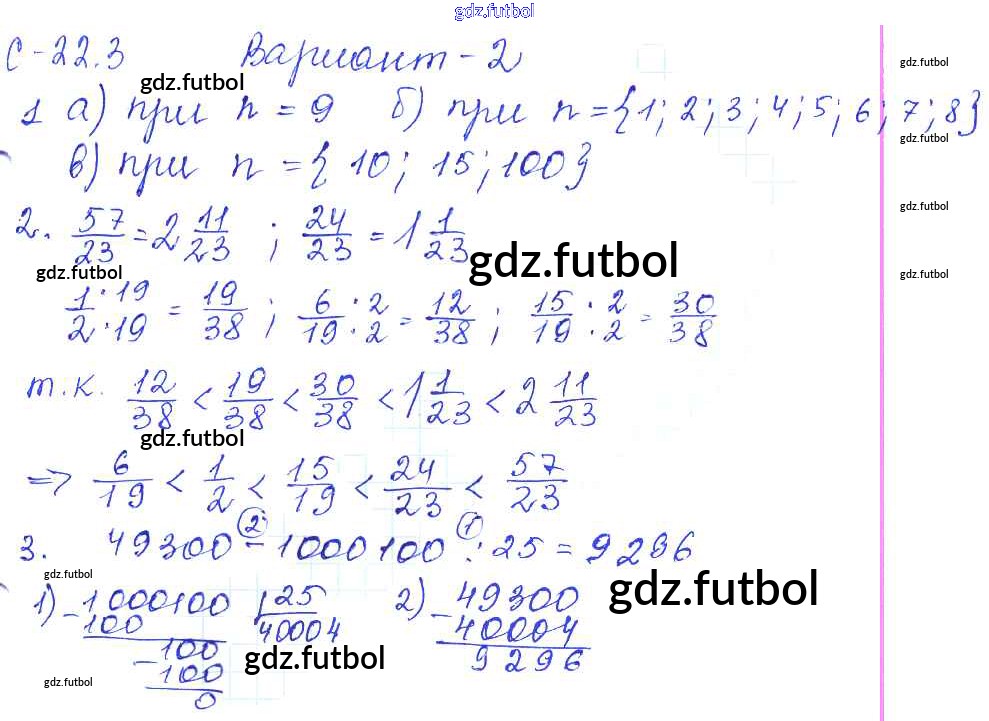 gdz.futbol
С-22.3 Вариант-2
gdz.futbol
gdz.futbol
1 а) при n = 9 б) при n = {1; 2; 3; 4; 5; 6; 7; 8}
gdz.futbol
в) при n = { 10; 15; 100}
gdz.futbol
2. 57/23 = 2 11/23 ; 24/23 = 1 1/23
gdz.futbol
gdz.futbol
gdz.futbol
1·19/2·19 = 19/38 ; 6·2/19·2 = 12/38 ; 15·2/19·2 = 30/38
т.к. 12/38 < 19/38 < 30/38 < 1 1/23 < 2 11/23
gdz.futbol
=> 6/19 < 1/2 < 15/19 < 24/23 < 57/23
② ①
3. 49300 - 1000100 : 25 = 9296
gdz.futbol
gdz.futbol
1) - 1000100 | 25 2) - 49300
100 40004 40004
- 100 9296
gdz.futbol
100
gdz.futbol
0